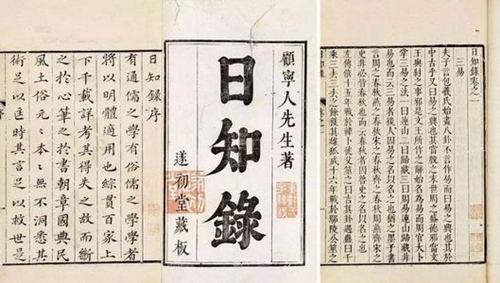 日知錄卷之一
三易
夫子言包羲氏始畫八卦不言作易而曰易之興也其於
中古乎又曰易之興也其當殷之末世周之盛德邪當文
王與紂之事邪是文王所作之辭始名為易而周官大卜
掌三易之法一曰連山二曰歸藏三曰周易連山歸藏非
易也而云三易者後人因易之名以名之也猶之墨子書
言周之春秋燕之春秋宋之春秋齊之春秋周燕齊宋之
史非必皆春秋也而云春秋者因魯史之名以名之也
左傳僖十五年戰於韓卜徒父筮之曰吉其卦遇蠱曰千
乘三去三去之餘獲其雄狐成十六年戰於鄢陵公筮之
顧寧人先生著
日知錄
遂初堂藏板
日知錄序
有通儒之學有俗儒之學學者
將以明體適用也綜貫百家上
下千載詳考其得失之故而斷
之於心筆之於書朝章國典民
風土俗元〻本〻無不洞悉其
術足以匡時其言足以救世是